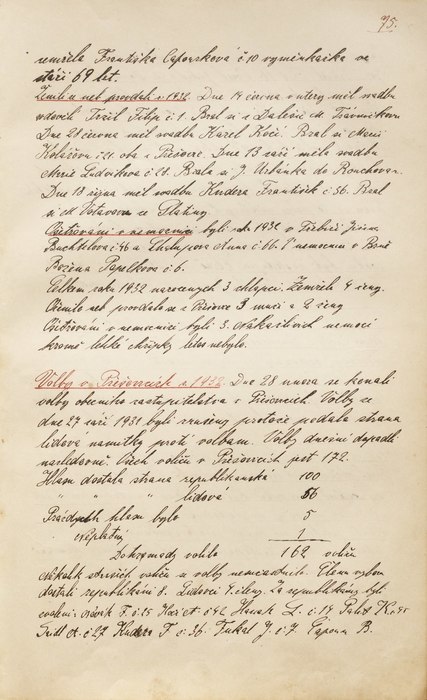 75.
zemřela Františka Capoušková č 10 výminkářka ve
stáří 69 let.
Ženili se neb provdali r. 1932. Dne 14 června v úterý měl svatbu
vdovec Tržil Filip č 1. Bral si z Dalešic M. Trávníčkovu
Dne 21 června měl svatbu Karel Kočí. Bral si Marii
Kolářovu č 21. oba z Přešovic. Dne 13 září měla svatbu
Marie Ludvíkova č 21. Brala si J. Urbánka do Rouchovan.
Dne 18 října měl svatbu Kudera František č 36. Bral
si M Votavovu ze Slatiny.
Ošetřováni v nemocnici byli roku 1932 v Třebíči Jiřina
Buchtelova č 46 a Chalupova Anna č 66. V nemocnici v Brně
Božena Papelkova č 6.
Celkem roku 1932 narozených 3 chlapci. Zemřelo 4 ženy.
Oženilo neb provdalo se z Přešovic 3 muži a 2 ženy
Ošetřováni v nemocnici byli 3. Nakažlivých nemocí
kromě lehké chřipky letos nebylo.
Volby v Přešovicích r. 1932. Dne 28 února se konali
volby obecního zastupitelstva v Přešovicích. Volby ze
dne 27 září 1931 byli zrušeny protože podala strana
lidová námitky proti volbám. Volby dnešní dopadli
následovně. Všech voličů v Přešovicích jest 172.
Hlasů dostala strana republikánská 100
" " " lidová 56
Prázdných hlasů bylo 5
neplatný 1
Dohromady volilo 162 voličů
Několik starších voličů se volby nezúčastnilo. Členů výboru
dostali republikáni 8. Lidovci 4 členy. Za republikány byli
zvoleni: F. č 25 č 42 L. č 14 K. č 45
č 27 F. č 36. Fukal J. č 7. Čapoun B.